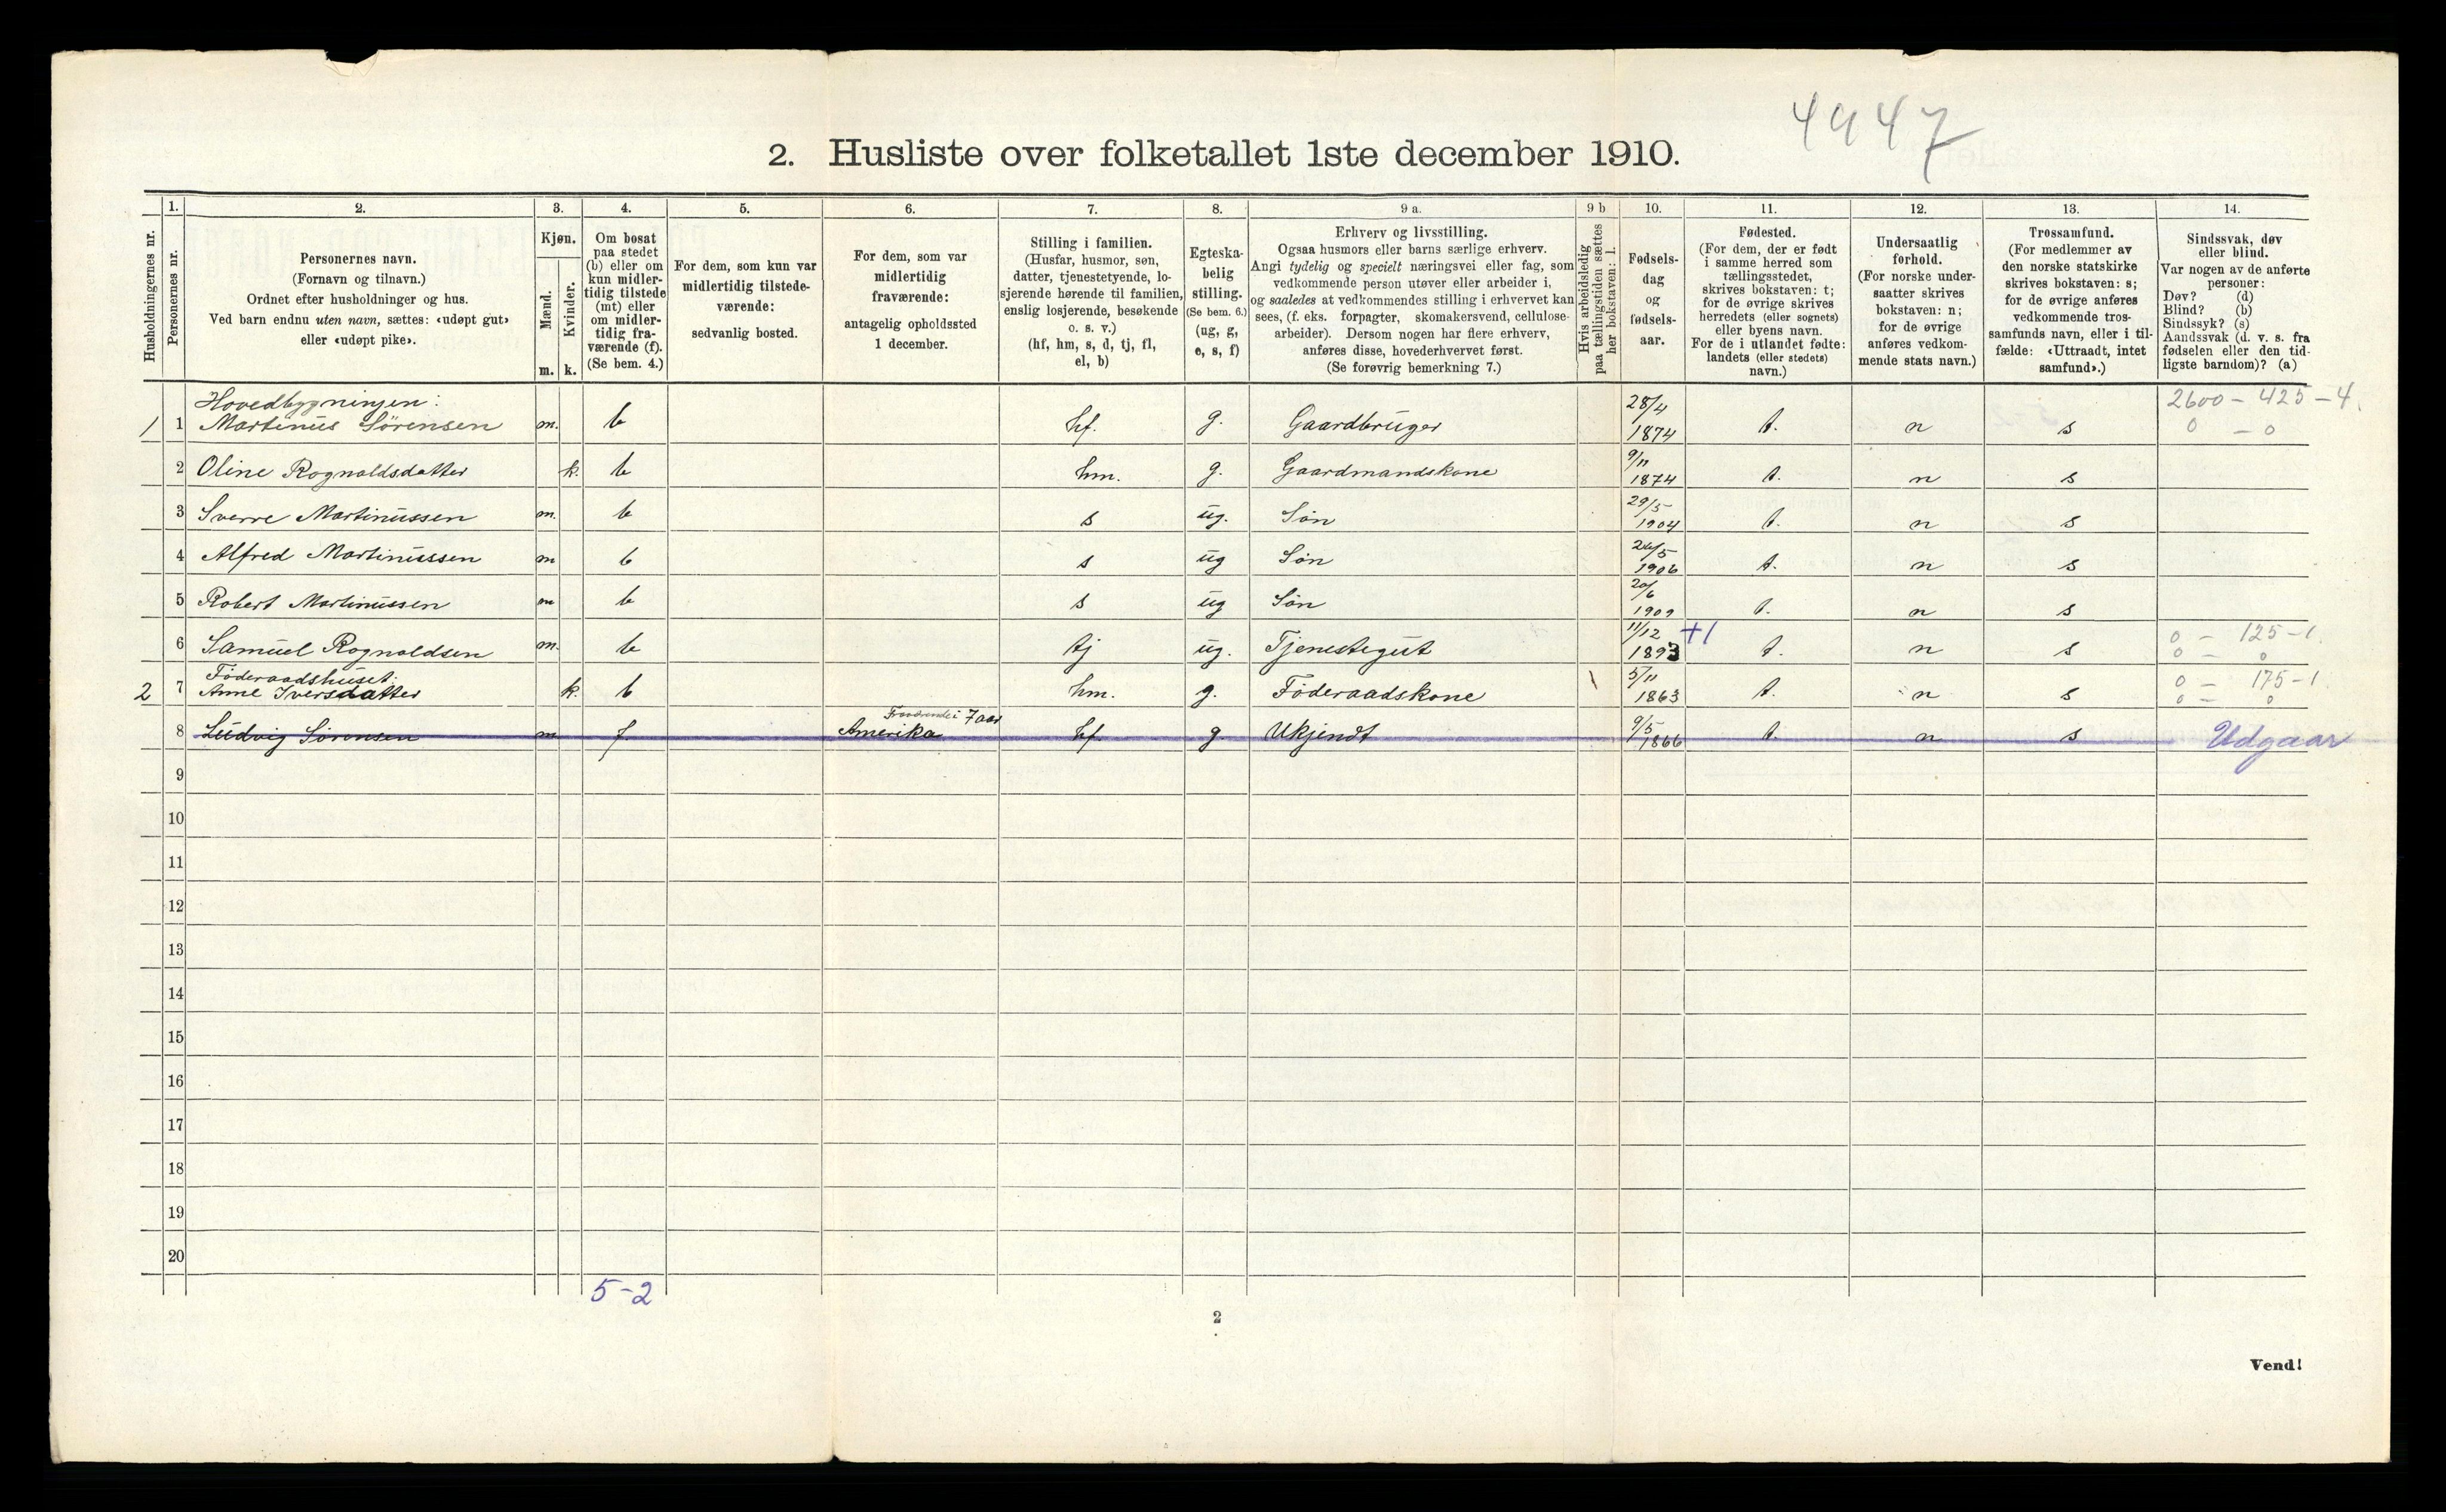 4947
2. Husliste over folketallet 1ste december 1910.
Husholdningernes nr.
1.
Personernes nr.
2.
Personernes navn.
(Fornavn og tilnavn.)
Ordnet efter husholdninger og hus.
Ved barn endnu uten navn, sættes: «udøpt gut»
eller «udøpt pike».
3.
Kjøn.
Mænd.
Kvinder.
m. k.
4.
Om bosat
paa stedet
(b) eller om
kun midler-
tidig tilstede
(mt) eller
om midler-
tidig fra-
værende (f).
(Se bem. 4.)
5.
For dem, som kun var
midlertidig tilstede-
værende:
sedvanlig bosted.
6.
For dem, som var
midlertidig
fraværende:
antagelig opholdssted
1 december.
7.
Stilling i familien.
(Husfar, husmor, søn,
datter, tjenestetyende, lo-
sjerende hørende til familien,
enslig losjerende, besøkende
o. s. v.)
(hf, hm, s, d, tj, fl,
el, b)
8.
Egteska-
belig
stilling.
(Se bem. 6.)
(ug, g,
e, s, f)
9 a.
Erhverv og livsstilling.
Ogsaa husmors eller barns særlige erhverv.
Angi tydelig og specielt næringsvei eller fag, som
vedkommende person utøver eller arbeider i,
og saaledes at vedkommendes stilling i erhvervet kan
sees, (f. eks. forpagter, skomakersvend, cellulose-
arbeider). Dersom nogen har flere erhverv,
anføres disse, hovederhvervet først.
(Se forøvrig bemerkning 7.)
9 b
Hvis arbeidsledig
paa tællingstiden sættes
her bokstaven: l.
10.
Fødsels-
dag
og
fødsels-
aar.
11.
Fødested.
(For dem, der er født
i samme herred som
tællingsstedet,
skrives bokstaven: t;
for de øvrige skrives
herredets (eller sognets)
eller byens navn.
For de i utlandet fødte:
landets (eller stedets)
navn.)
12.
Undersaatlig
forhold.
(For norske under-
saatter skrives
bokstaven: n;
for de øvrige
anføres vedkom-
mende stats navn.)
13.
Trossamfund.
(For medlemmer av
den norske statskirke
skrives bokstaven: s;
for de øvrige anføres
vedkommende tros-
samfunds navn, eller i til-
fælde: «Uttraadt, intet
samfund».)
14.
Sindssvak, døv
eller blind.
Var nogen av de anførte
personer:
Døv? (d)
Blind? (b)
Sindssyk? (s)
Aandssvak (d. v. s. fra
fødselen eller den tid-
ligste barndom)? (a)
Hovedbygningen: 2600 – 425 – 4.
1 1 Martinus Sörensen m. b hf. g. Gaardbruger 28/4 1874 t. n s 0 – 0
2 Oline Rognaldsdatter k. b hm. g. Gaardmandskone 9/11 1874 t. n s
3 Sverre Martinussen m. b s ug. Sön 29/5 1904 t. n s
4 Alfred Martinussen m b s ug Sön 26/5 1906 t. n s
5 Robert Martinussen m b s ug Sön 20/6 1909 t. n s
6 Samuel Rognaldsen m. b tj ug. Tjenestegut 11/12 1893 +1 t. n s 0 – 125 – 1. 0 – 0
Föderaadshuset:
2 7 Anne Iversdatter k. b hm. g. Föderaadskone 5/11 1863 t. n s 0 – 175 – 1. 0 – 0
8 Ludvig Sörensen m f. Fraværende i 7 aar Amerika hf. g. Ukjendt 9/5 1866 t. n s Udgaar
9
10
11
12
13
14
15
16
17
18
19
20
5–2
2
Vend!